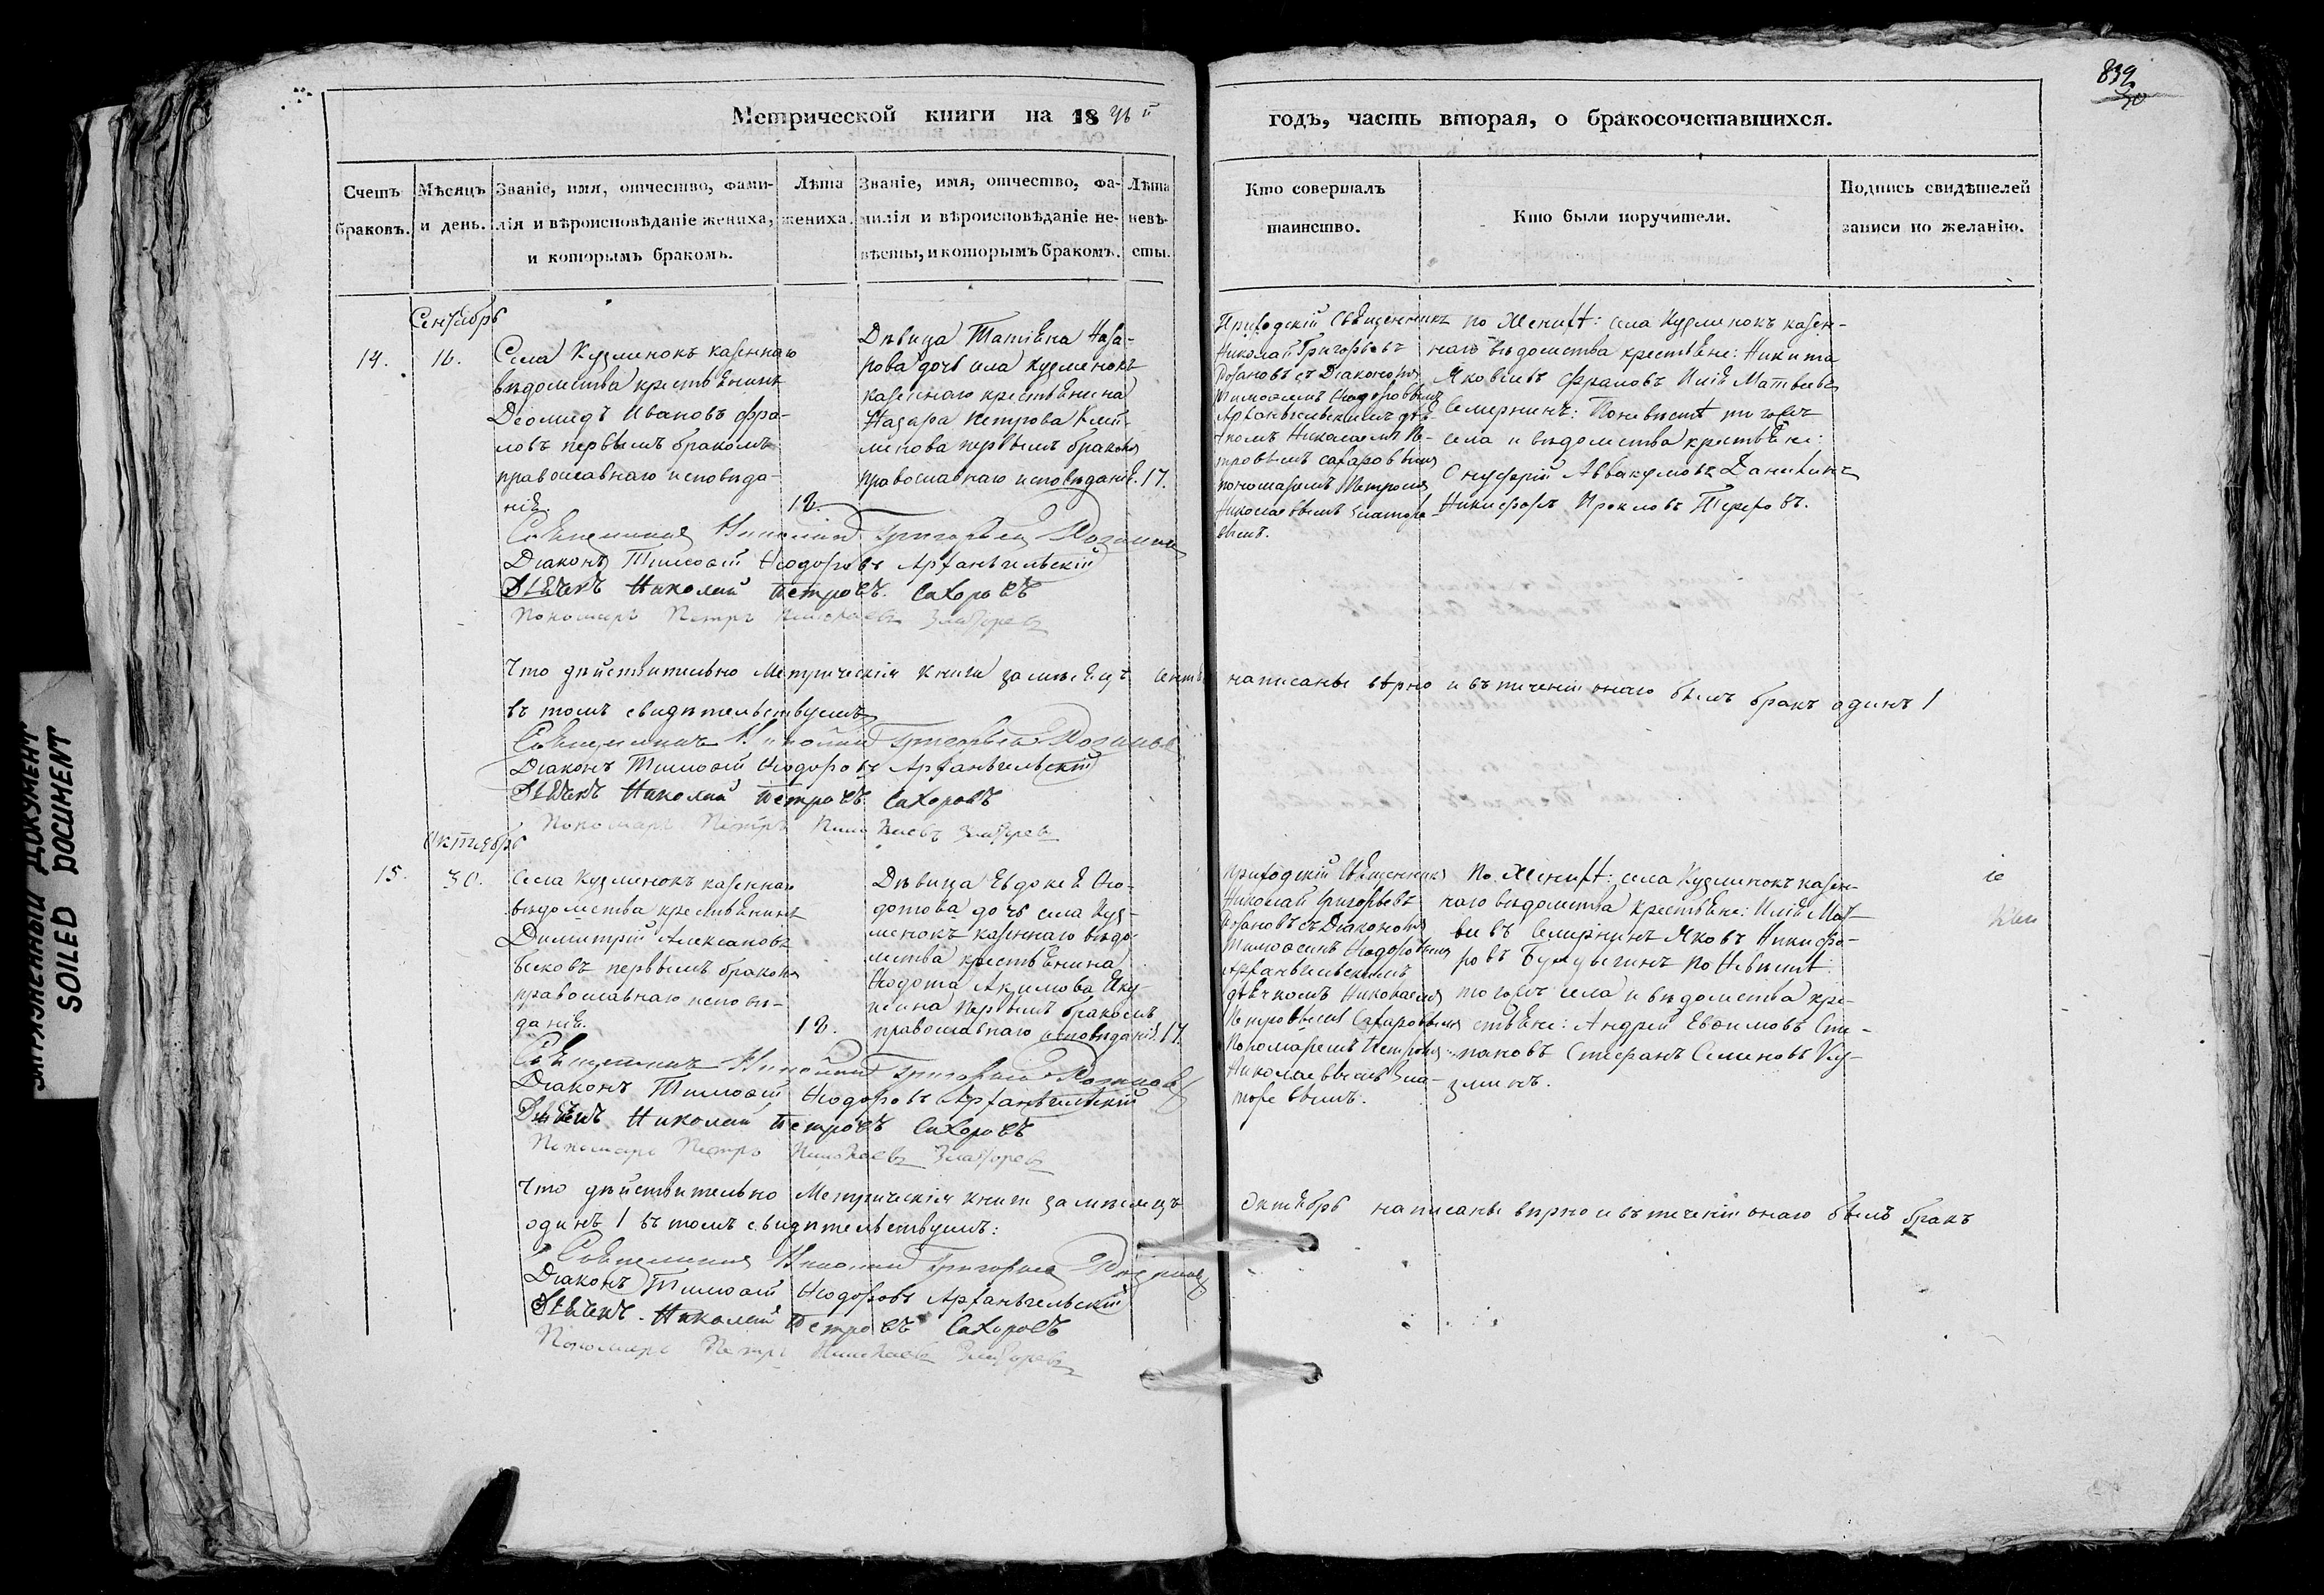 839
Метрической книги на 1846й годъ, часть вторая, о бракосочетавшихся.
Счетъ браковъ.
Мѣсяцъ и день.
Званіе, имя, отчество, фами-
лія и вѣроисповѣданіе жениха,
и которымъ бракомъ.
Лѣта
жениха.
Званіе, имя, отчество, фа-
милія и вѣроисповѣданіе не-
вѣсты, и которымъ бракомъ.
Лѣта
невѣ-
сты.
Кто совершалъ
таинство.
Кто были поручители.
Подпись свидѣтелей
записи по желанію.
Сентябрь
14.
16.
Села Кузминокъ казеннаго
вѣдомства крестьянинъ
Дѣомидъ Ивановъ Фра-
ловъ первымъ бракомъ
православнаго исповѣда-
нія.
18.
Дѣвица Татіяна Наза-
рова дочь села Кузминокъ
казеннаго крестьянина
Назара Петрова Кли-
менова первымъ бракомъ
православнаго исповѣданія.
17.
Приходскій Священникъ
Николай Григорьевъ
Розановъ съ Діакономъ
Тимофеемъ Ѳеодоровымъ
Архангельскимъ дья-
чкомъ Николаемъ Пе-
тровымъ Сахаровымъ
пономаремъ Петромъ
Николаевымъ Златоре-
вымъ.
по Женихѣ: села Кузминокъ казен-
наго вѣдомства крестьяне: Никита
Яковлевъ Фраловъ Илія Матвеевъ
Смирнинъ: По невѣстѣ тогожъ
села и вѣдомства крестьяне:
Онуфрій Аввакумовъ Данилинъ
Никифоръ Прокловъ Тереховъ.
Священникъ Николай Григорьевъ Розановъ
Діаконъ Тимофей Ѳеодоровъ Архангельскій
Дьячекъ Николай Петровъ Сахоровъ
Пономарь Петръ Николаевъ Златоревъ
Что дѣйствительно Метрическія книги за мѣсяцъ Сентябрь написаны вѣрно и въ теченіи онаго былъ бракъ одинъ 1
въ томъ свидѣтельствуемъ
Священникъ Николай Григорьевъ Розановъ
Діаконъ Тимофей Ѳеодоровъ Архангельскій
Дьячекъ Николай Петровъ Сахоровъ
Пономарь Петръ Николаевъ Златоревъ
Октябрь
15.
30.
Села Кузминокъ казеннаго
вѣдомства крестьянинъ
Димитрій Алексановъ
Бековъ первымъ бракомъ
православнаго исповѣ-
данія.
18.
Дѣвица Евдокея Ѳео-
дотова дочь села Куз-
минокъ казеннаго вѣдо-
мства крестьянина
Ѳеодота Акимова
первымъ бракомъ
православнаго исповѣданія.
17.
приходскій Священникъ
Николай Григорьевъ
Розановъ съ Діакономъ
Тимофеемъ Ѳеодоровымъ
Архангельскимъ
дьячкомъ Николаемъ
Петровымъ Сахаровымъ
Пономаремъ Петромъ
Николаевымъ Зла-
торевымъ.
По Женихѣ: села Кузминокъ казен-
наго вѣдомства крестьяне: Илія Мат-
веевъ Смирнинъ Яковъ Никифо-
ровъ по Невѣстѣ:
тогожъ села и вѣдомства кре-
стьяне: Андрей Евѳимовъ Сте-
пановъ Стефанъ Семеновъ Ку-
зминъ.
Священникъ Николай Григорьевъ Розановъ
Діаконъ Тимофей Ѳеодоровъ Архангельскій
Дьячекъ Николай Петровъ Сахоровъ
Пономарь Петръ Николаевъ Златоревъ
Что дѣйствительно Метрическія книги за мѣсяцъ Октябрь написаны вѣрно и въ теченіи онаго былъ бракъ
одинъ 1 въ томъ свидѣтельствуемъ:
Священникъ Николай Григорьевъ Розановъ
Діаконъ Тимофей Ѳеодоровъ Архангельскій
Дьячекъ Николай Петровъ Сахоровъ
Пономарь Петръ Николаевъ Златоревъ
ЗАГРЯЗНЕННЫЙ ДОКУМЕНТ
SOILED DOCUMENT